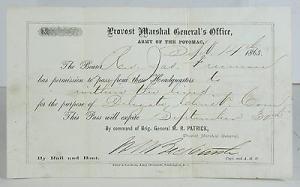 Provost Marshal General's Office,
ARMY OF THE POTOMAC,
1863.
The Bearer Rev. Jas.
has permission to pass from these Headquarters to
within the lines
for the purpose of Delegate Com
This Pass will expire September 30
By command of Brig. General M. R. PATRICK,
Provost Marshal General.
Capt. and A. D. C.
By Rail and Boat.